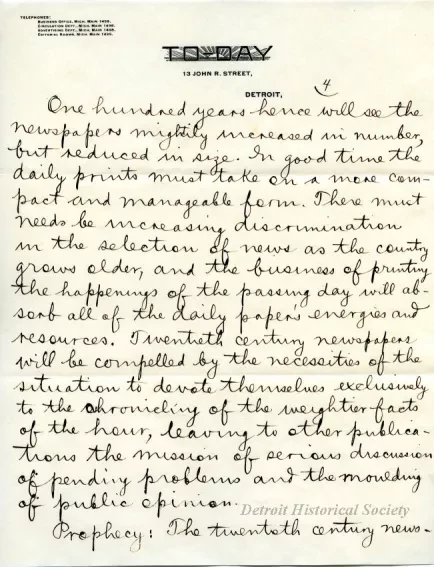 TELEPHONES:
BUSINESS OFFICE, MICH. MAIN 1496.
CIRCULATION DEPT., MICH. MAIN 1496.
ADVERTISING DEPT., MICH. MAIN 1496.
EDITORIAL ROOMS, MICH. MAIN 1496.
TO-DAY
13 JOHN R. STREET,
DETROIT,
4
One hundred years hence will see the
newspapers mightily increased in number,
but reduced in size. In good time the
daily prints must take on a more com-
pact and manageable form. There must
needs be increasing discrimination
in the selection of news as the country
grows older, and the business of printing
the happenings of the passing day will ab-
sorb all of the daily papers energies and
resources. Twentieth century newspapers
will be compelled by the necessities of the
situation to devote themselves exclusively
to the chronicling of the weightier facts
of the hour, leaving to other publica-
tions the mission of serious discussion
of pending problems and the moulding
of public opinion.
Detroit Historical Society
Prophecy: The twentieth century news-